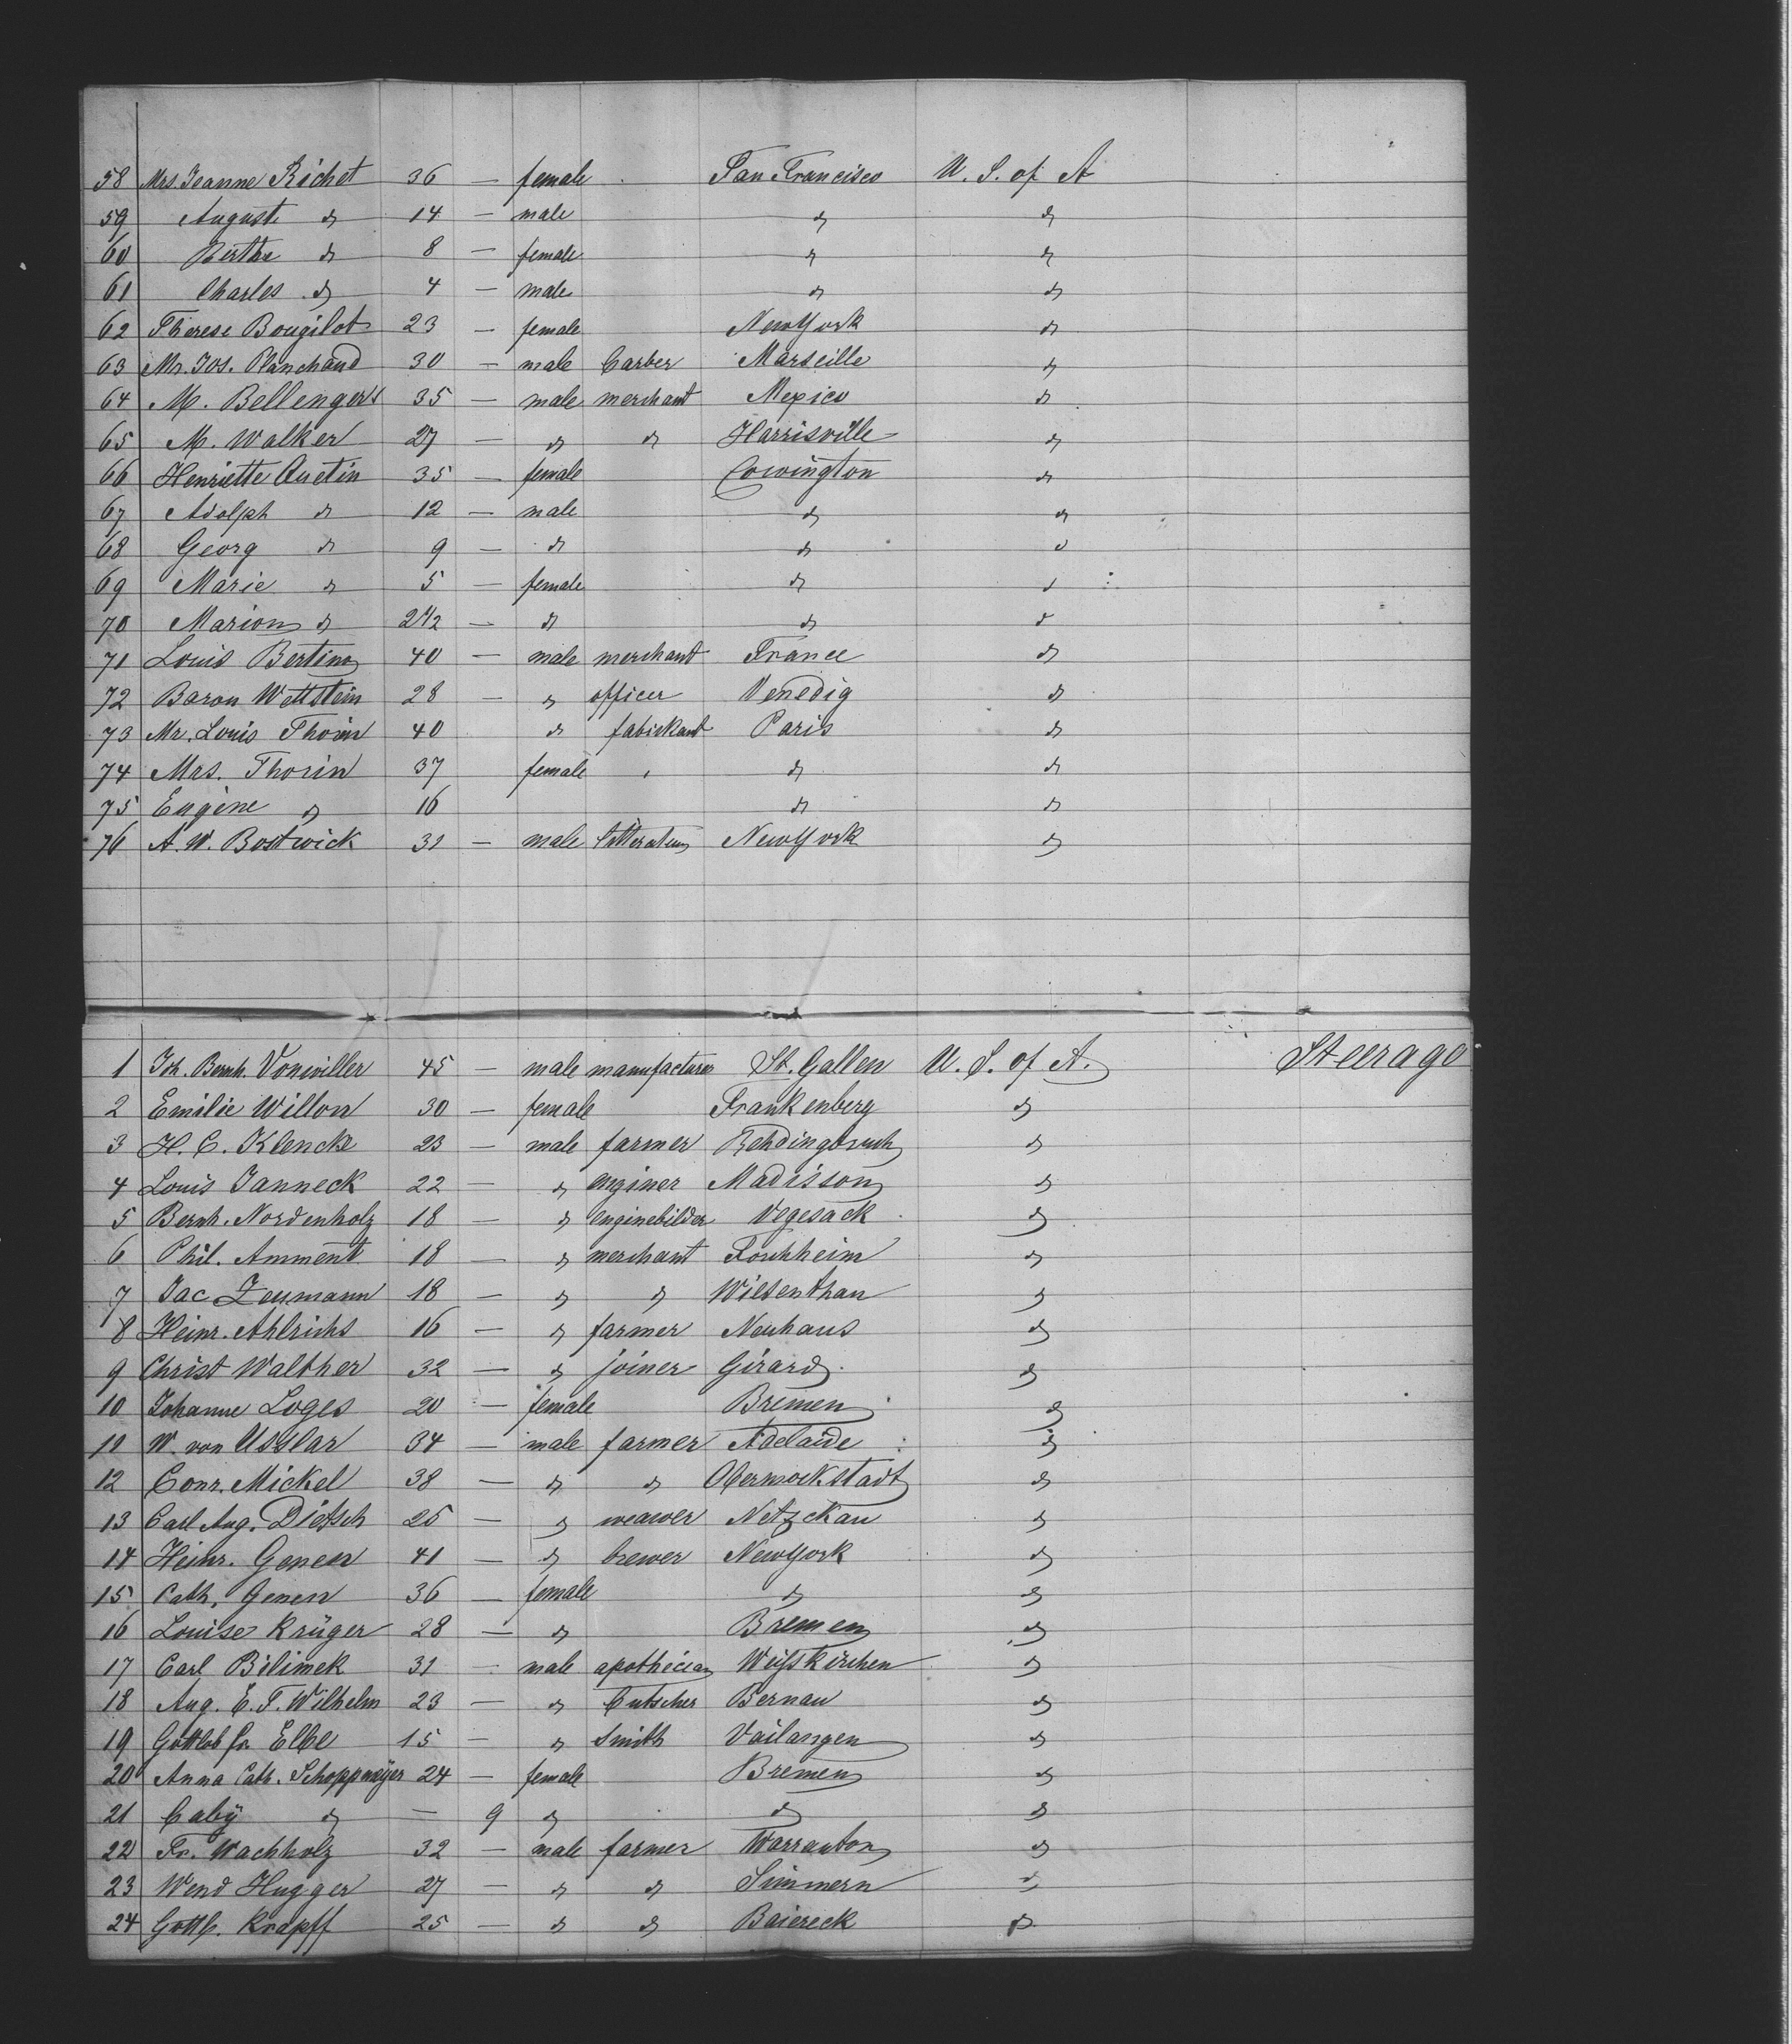 58 Mrs. Jeanne Richet 36 — female San Francisco U. S. of A
59 Auguste do 14 — male do do
60 Berthe do 8 — female do do
61 Charles do 4 — male do do
62 Therese Bougilot 23 — female NewYork do
63 Mr. Jos. Planchaud 30 — male barber Marseille do
64 M. Bellenger's 35 — male merchant Mexico do
65 M. Walker 27 — do do Harrisville do
66 Henriette Austin 35 — female Cowington do
67 Adolph do 12 — male do do
68 Georg do 9 — do do do
69 Marie do 5 — female do do
70 Marion do 2 1/2 — do do do
71 Louis Bertina 40 — male merchant France do
72 Baron Wettstein 28 — do officer Venedig do
73 Mr. Louis Thorin 40 do fabrikant Paris do
74 Mrs. Thorin 37 female do do
75 Eugène do 16 do do
76 A. W. Bostwick 31 — male NewYork do
1 Joh. Bernh. Vonwiller 45 — male manufacturer St. Gallen U. S. of A. Steerage
2 Emilie Willon 30 — female Frankenberg do
3 H. C. Klencke 23 — male farmer Rehdingbruch do
4 Louis Janneck 22 — do enginer Madisson do
5 Bernh. Nordenholz 18 — do enginebilder Vegesack do
6 Phil. Amment 18 — do merchant Forchheim do
7 Jac Zeumann 18 — do do Wiesenthau do
8 Heinr. Ahlrichs 16 — do farmer Neuhaus do
9 Christ Walther 32 — do joiner Girard do
10 Johanne Loges 20 — female Bremen do
11 W. von Usslar 34 — male farmer Adelaide do
12 Conr. Mickel 38 — do do Obermockstadt do
13 Carl Aug. Dietsch 25 — do weawer Netzckau do
14 Heinr. Genen 41 — do brewer NewYork do
15 Cath. Genen 36 — female do do
16 Louise Krüger 28 — do Bremen do
17 Carl Bilimek 31 — male apothecian Weisskirchen do
18 Aug. E. F. Wilhelm 23 — do butscher Bernau do
19 Gottlob Fr. Elbe 15 — do smith Vailangen do
20 Anna Cath. Schoppmeÿer 24 — female Bremen do
21 baby do — 9 do do do
22 Fr. Wachholz 32 — male farmer Warranton do
23 Wend Hugger 27 — do do Simmern do
24 Gottl. Krapff 25 — do do Baiereck do